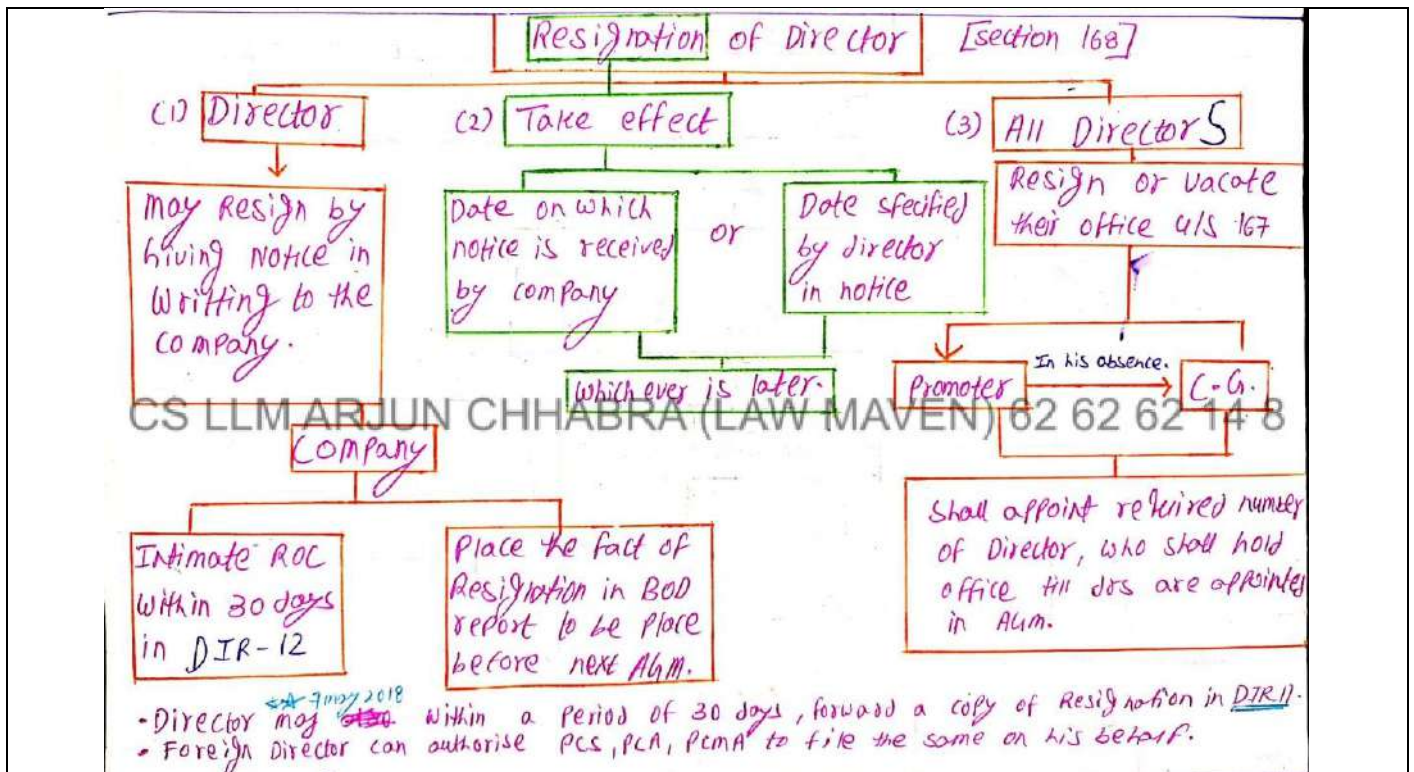 Resignation of Director [section 168]
(1) Director
may Resign by
Giving Notice in
Writting to the
company.
Company
Intimate ROC
within 30 days
in DIR-12
Place the fact of
Resignation in BOD
report to be place
before next AGM.
(2) Take effect
Date on which
notice is received
by company
or
Date specified
by director
in notice
whichever is later.
(3) All Directors
Resign or vacate
their office u/s 167
Promoter
In his absence.
C.G.
Shall appoint required number
of Director, who shall hold
office till drs are appointed
in AGM.
CS LLM ARJUN CHHABRA (LAW MAVEN) 62 62 62 14 8
7 may 2018
• Director may within a period of 30 days, forward a copy of Resignation in DIR11.
• Foreign Director can authorise PCS, PCA, PCMA to file the same on his behalf.